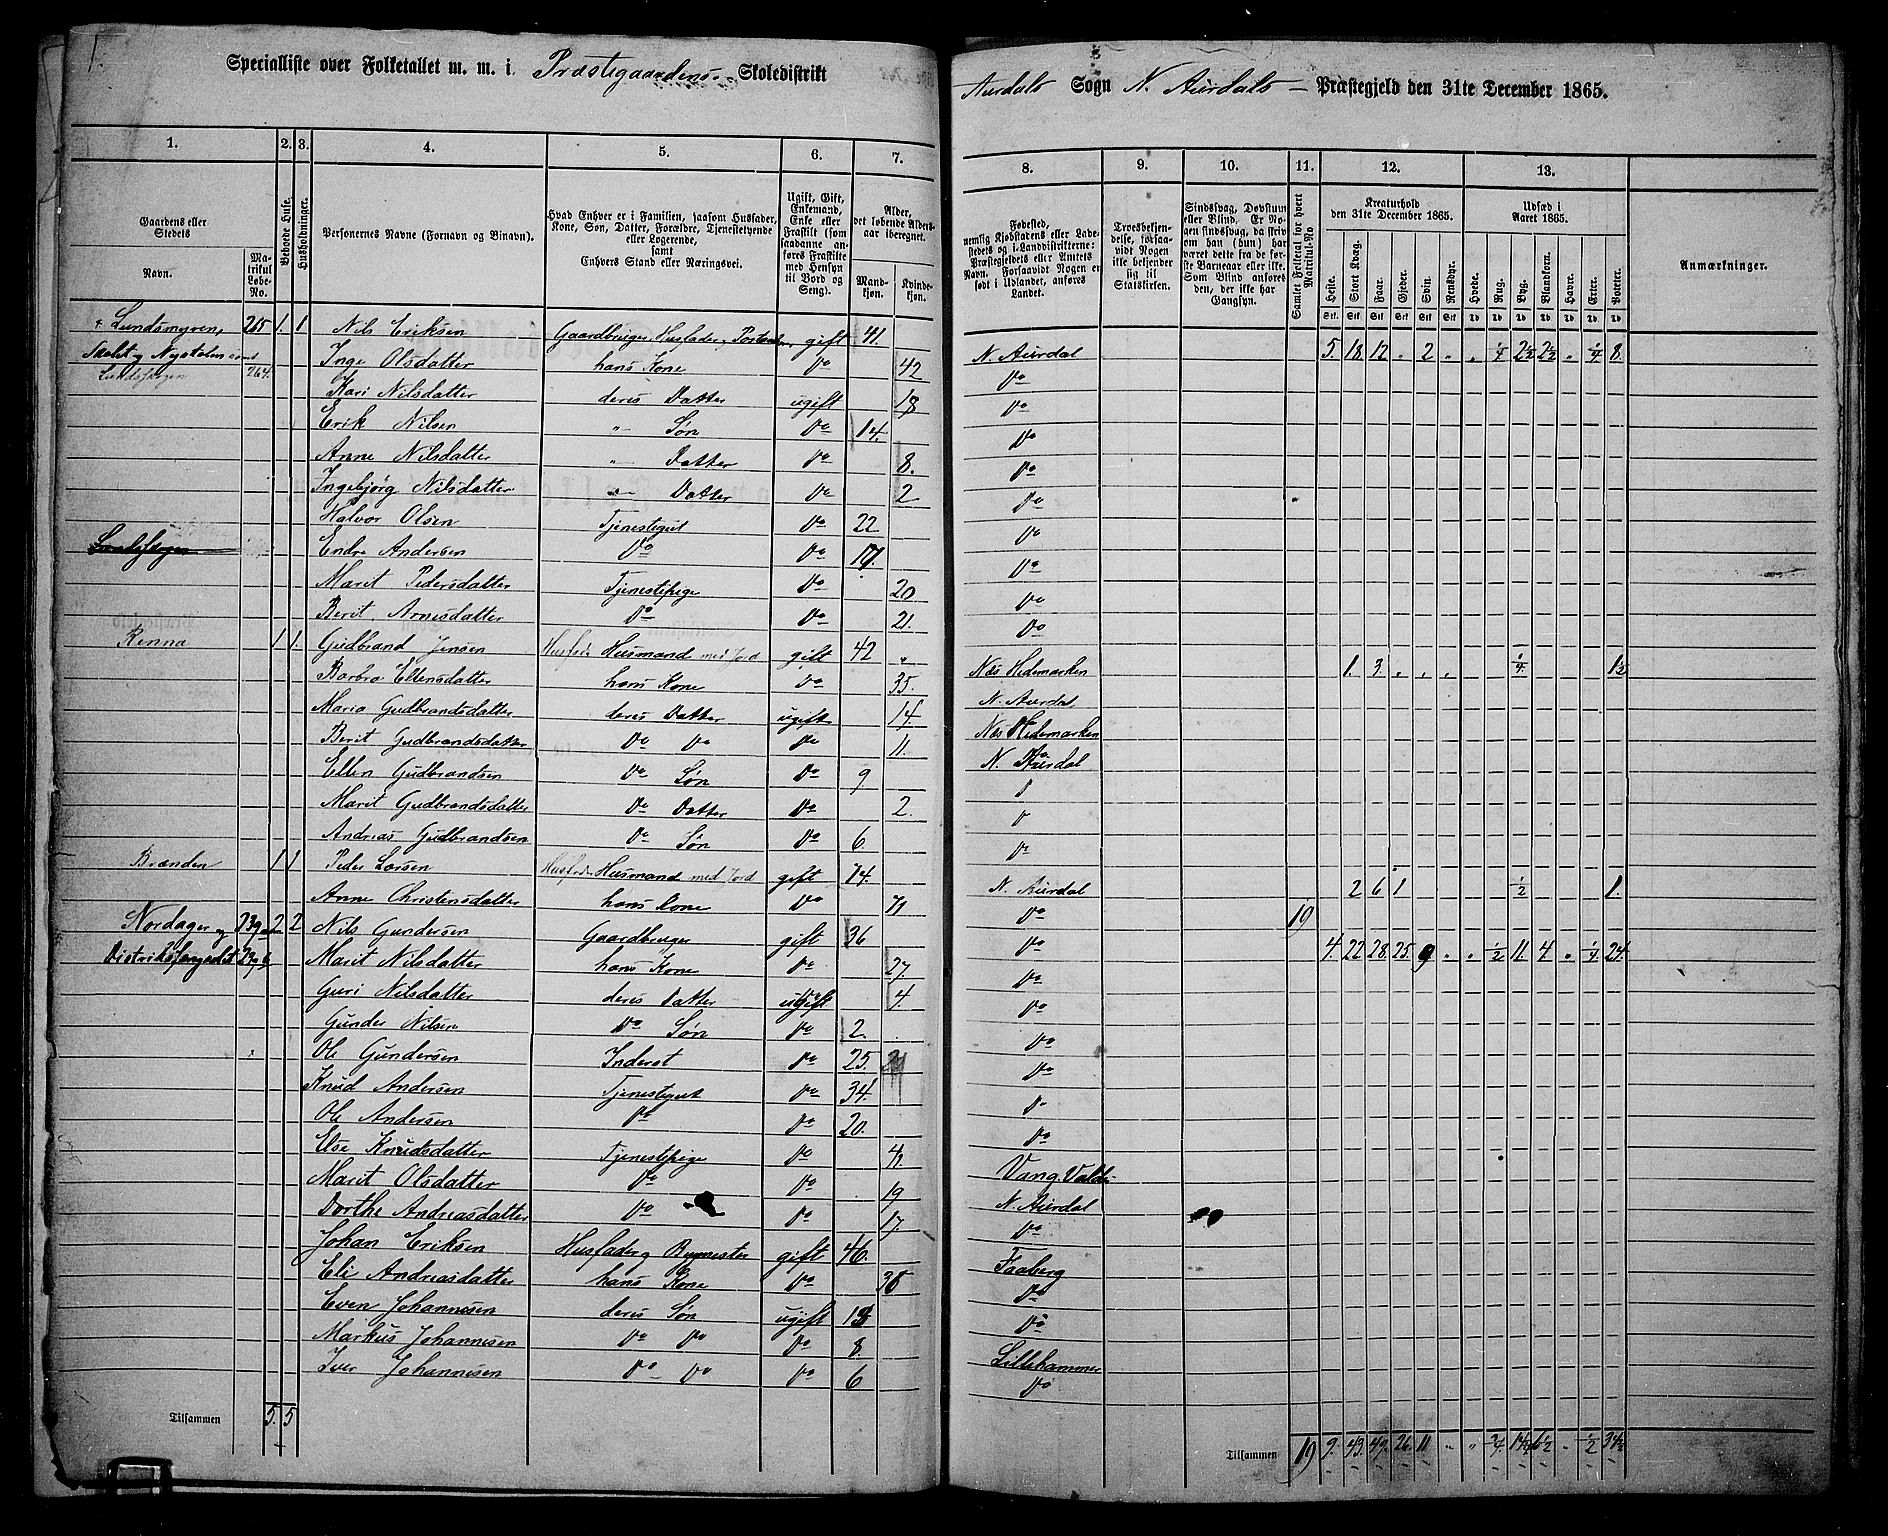 1.
Specialliste over Folketallet m. m. i Præstegaardens Skoledistrikt
Aurdals Sogn N. Aurdals Præstegjeld den 31te December 1865.
1. 2. 3. 4. 5. 6. 7. 8. 9. 10. 11. 12. 13.
Gaardens eller Stedets
Navn.
Matrikul Løbe-No.
Beboede Huse.
Husholdninger.
Personernes Navne (Fornavn og Binavn).
Hvad Enhver er i Familien, saasom Husfader, Kone, Søn, Datter, Forældre, Tjenestetyende eller Logerende, samt Enhvers Stand eller Næringsvei.
Ugift, Gift, Enkemand, Enke eller Fraskilt (som saadanne anføres Fraskilte med Hensyn til Bord og Seng).
Alder, det løbende Aldersaar iberegnet.
Mandkjøn.
Kvindekjøn.
Fødested, nemlig Kjøbstadens eller Ladestedets og i Landdistrikterne: Præstegjeldets eller Amtets Navn. Forsaavidt Nogen er født i Udlandet, anføres Landet.
Troesbekjendelse, forsaavidt Nogen ikke bekjender sig til Statskirken.
Sindssvag, Døvstum eller Blind. Er Nogen sindssvag, da skriv om han (hun) har været dette fra de første Barneaar eller ikke. Som Blind anføres den, der ikke har Gangsyn.
Samlet Folketal for hvert Matrikul-No
Kreaturhold den 31te December 1865.
Heste. Stort Kvæg. Faar. Gjeder. Svin. Rensdyr.
Udsæd i Aaret 1865.
Hvede. Rug. Byg. Blandkorn. Havre. Erter. Poteter.
Anmærkninger.
Lundsmyren, 265 1. 1 Nils Eriksen Gaardbruger, Husfader gift 41. N. Aurdal 5. 18. 12 " 2 " " ¼ 2½ 2½ " ¼ 8.
264. Inge Olsdatter hans Kone Do 42 Do
Kari Nilsdatter deres Datter ugift 18 Do
Erik Nilsen " Søn Do 14. Do
Anne Nilsdatter " Datter Do 8. Do
Ingebjørg Nilsdatter " Datter Do 2 Do
Halvor Olsen Tjenestegut Do 22 Do
Endre Andersen Do Do Do
Marit Pedersdatter Tjenestepige Do 20 Do
Berit Arnesdatter Do Do 21. Do
Renna 1 1. Gudbrand Jensen Husfader Husmand med Jord gift 42 " Næs Hedemarken 1. 3 " " " ¼ 1½
Barbro Ellensdatter hans Kone Do 35. N. Aurdal
Maria Gudbrandsdatter deres Datter ugift 14. Næs Hedemarken
Berit Gudbrandsdatter Do Do Do 11. N. Aurdal
Ellen Gudbrandsen Do Søn Do 9
Marit Gudbrandsdatter Do Datter Do 2.
Andreas Gudbrandsen Do Søn Do 6. Do
Brænden 1 1 Peder Larsen Husfader Husmand med Jord gift 74. N. Aurdal 2 6 1 ½ 1.
Anne Christensdatter hans Kone Do 71 Do 19
Nordager og 2 2 Nils Gundersen Gaardbruger gift 36 Do 4. 22 28. 25. 9 " " ½ 11. 4 " ¼ 24.
Marit Nilsdatter hans Kone Do 27. Do
Guri Nilsdatter deres Datter ugift 4. Do
Gunder Nilsen Do Søn Do 2. Do
Ole Gundersen Inderst Do 25. Do
Knud Andersen Tjenestegut Do 34. Do
Ole Andersen Do Do 20. Do
Else Knudsdatter Tjenestepige Do Vang, Valdr.
Marit Olsdatter Do Do 19 N. Aurdal
Dorthe Andreasdatter Do Do 17. Do
Johan Eriksen Husfader gift 46. Faaberg
Eli Andreasdatter hans Kone Do Do
Even Johannesen deres Søn ugift Do
Markus Johannesen Do Do Do 8. Lillehammer
Iver Johannesen Do Do Do 6 Do
Tilsammen 5. 5
Tilsammen 19 9. 43. 49. 26. 11 " " ¾ 14¼ 6½ " ½ 34½